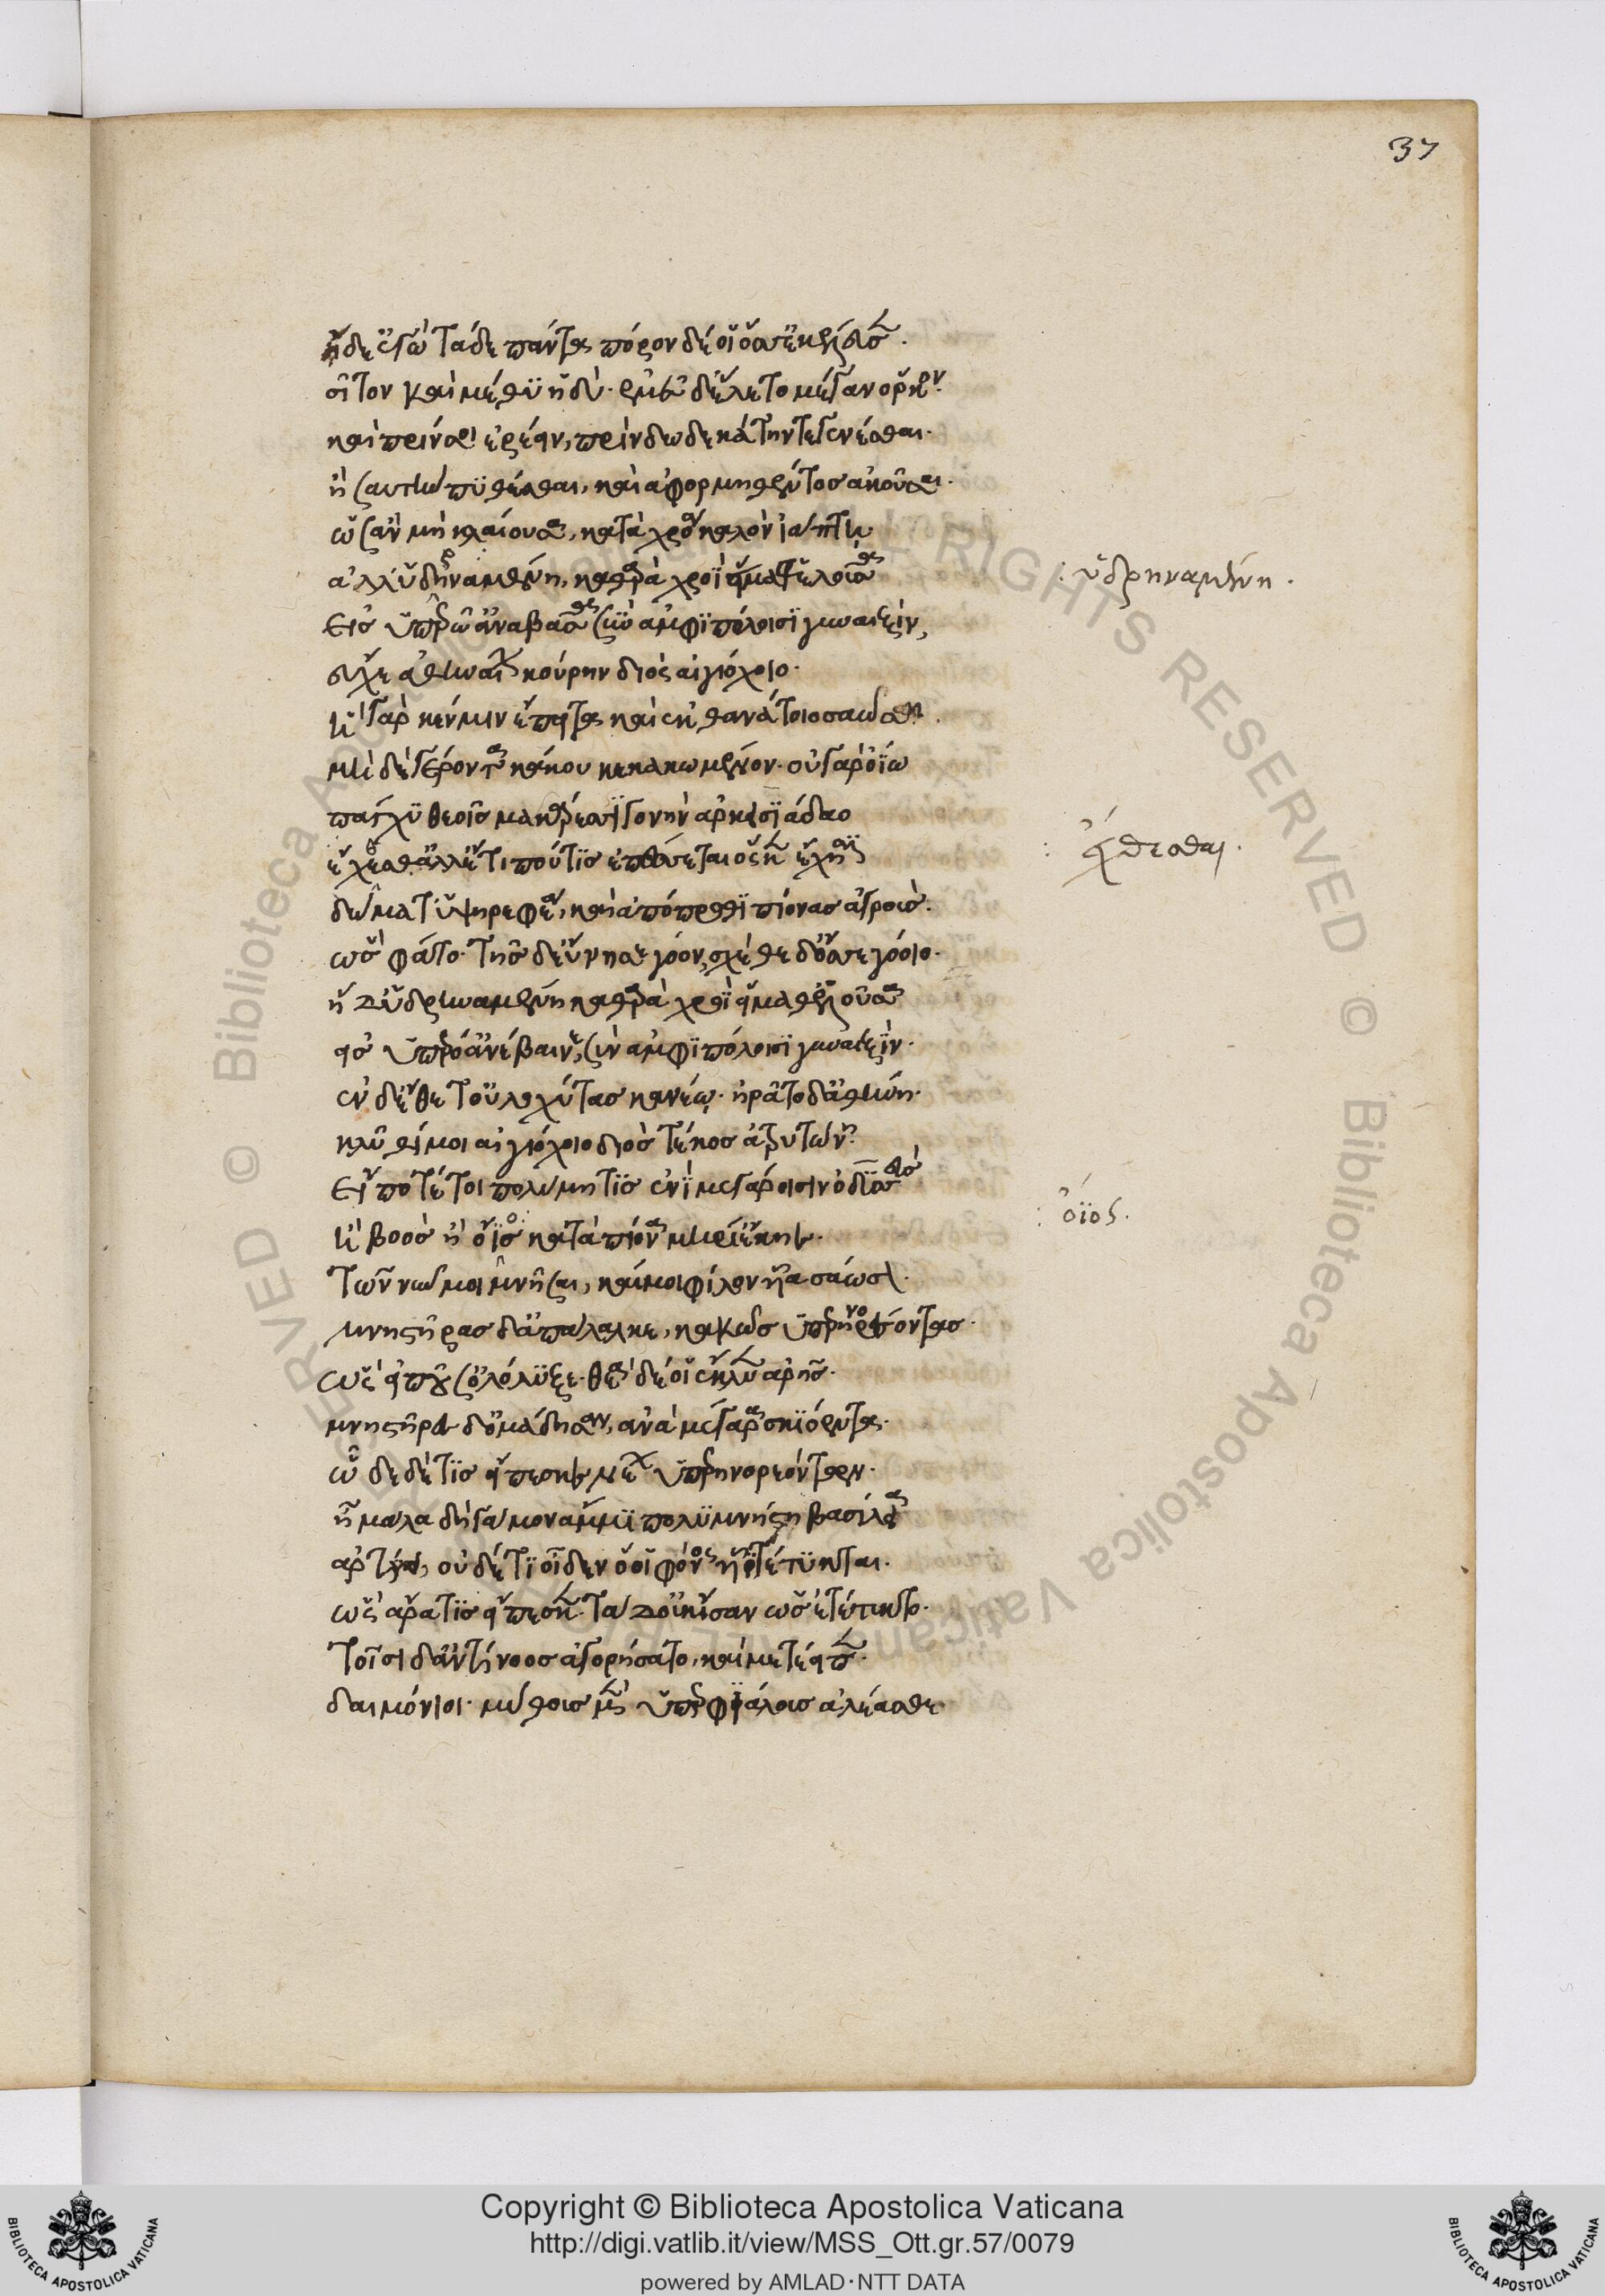 37
ᾔδε' ἐγὼ τάδε πάντα πόρον δέ οἱ ὅσσ' ἐκέλευσε.
σῖτον καὶ μέθυ ἡδύ. ἐμεῦ δ' ἕλετο μέγαν ὅρκον.
καὶ πρίν σοι ἐρέειν, πρὶν δωδεκάτην τε γενέσθαι.
ἢ σ' αὐτὴν πυθέσθαι, καὶ ἀφορμηθέντος ἀκοῦσαι.
ὡς ἂν μὴ κλαίουσα, κατὰ χρόα καλὸν ἰάπτῃ
ἀλλ' ὑδρηναμένη, καθαρὰ χροῒ εἵμαθ' ἑλοῦσα
εἰς ὑπερῶ ἀναβᾶσα σὺν ἀμφιπόλοισι γυναιξίν,
εὔχε' ἀθηναίη κούρην διὸς αἰγιόχοιο.
ἡ γάρ κέν μιν ἔπειτα καὶ ἐκ θανάτοιο σαώση.
μὴ δὲ γέροντα κάκου κεκακωμένον. οὐ γὰρ ὀΐω
πάγχυ θεοῖς μακάρεσσι γονὴν ἀρκεισιάδαο
ἔχθεσθ' ἀλλ' ἔτι πού τις ἐπέσεται ὅς κεν ἔχησι
δώματ' ὑψηρεφέα, καὶ ἀπόπροθι πίονας ἀγρούς.
ὣς φάτο. τῆς δ' εὔνησε γόον, σχέθε δ' ὄσσε γόοιο.
ἡ δ' ὑδρηναμένη καθαρὰ χροῒ εἵμαθ' ἑλοῦσα
εἰς ὑπερῶ ἀνέβαινε, σὺν ἀμφιπόλοισι γυναιξίν.
ἐν δ' ἔθετ' οὐλοχύτας κανέῳ. ἠρᾶτο δ' ἀθήνη.
κλῦθί μοι αἰγιόχοιο διὸς τέκος ἀτρυτώνη.
εἴ ποτέ τοι πολύμητις ἐνὶ μεγάροισιν ὀδυσσεὺς
ἢ βοὸς ἢ ὄϊος κατὰ πίονα μηρί' ἔκηε.
τῶν νῦν μοι μνῆσαι, καί μοι φίλον υἷα σάωσον.
μνηστῆρας δ' ἀπάλαλκε, κακῶς ὑπερηνορέοντας.
ὣς εἰποῦσ' ὀλόλυξε. θεὰ δέ οἱ ἔκλυεν ἀρῆς.
μνηστῆρες δ' ὁμάδησαν, ἀνὰ μέγαρα σκιόεντα.
ὧδε δέ τις εἴπεσκε νέων ὑπερηνορεόντων.
ἦ μάλα δὴ γάμον ἄμμι πολυμνήστη βασίλεια
ἀρτύει, οὐδέ τι οἶδεν ὅ οἱ φόνος υἷϊ τέτυκται.
ὣς ἄρα τις εἴπεσκε. τὰ δ' οὐκ ἴσαν ὡς ἐτέτυκτο.
τοῖσι δ' ἀντίνοος ἀγορήσατο, καὶ μετέειπε.
δαιμόνιοι. μύθους μὲν ὑπερφιάλους ἀλέασθε
: ὑδρηναμένη.
: ἔχθεσθαι.
: ὄϊος.
Copyright © Biblioteca Apostolica Vaticana
http://digi.vatlib.it/view/MSS_Ott.gr.57/0079
powered by AMLAD·NTT DATA